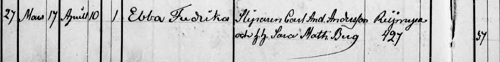 27 Mars 17 April 10 1 Ebba Fredrika Sliparen Carl And. Andersson Reijmyre
och h. h. Sara Math. Berg 427 37